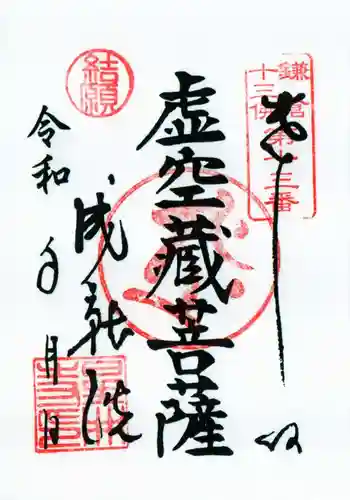 奉拝
鎌倉第十三番
十三佛
虚空蔵菩薩
結願
成就院
令和 年 月 日